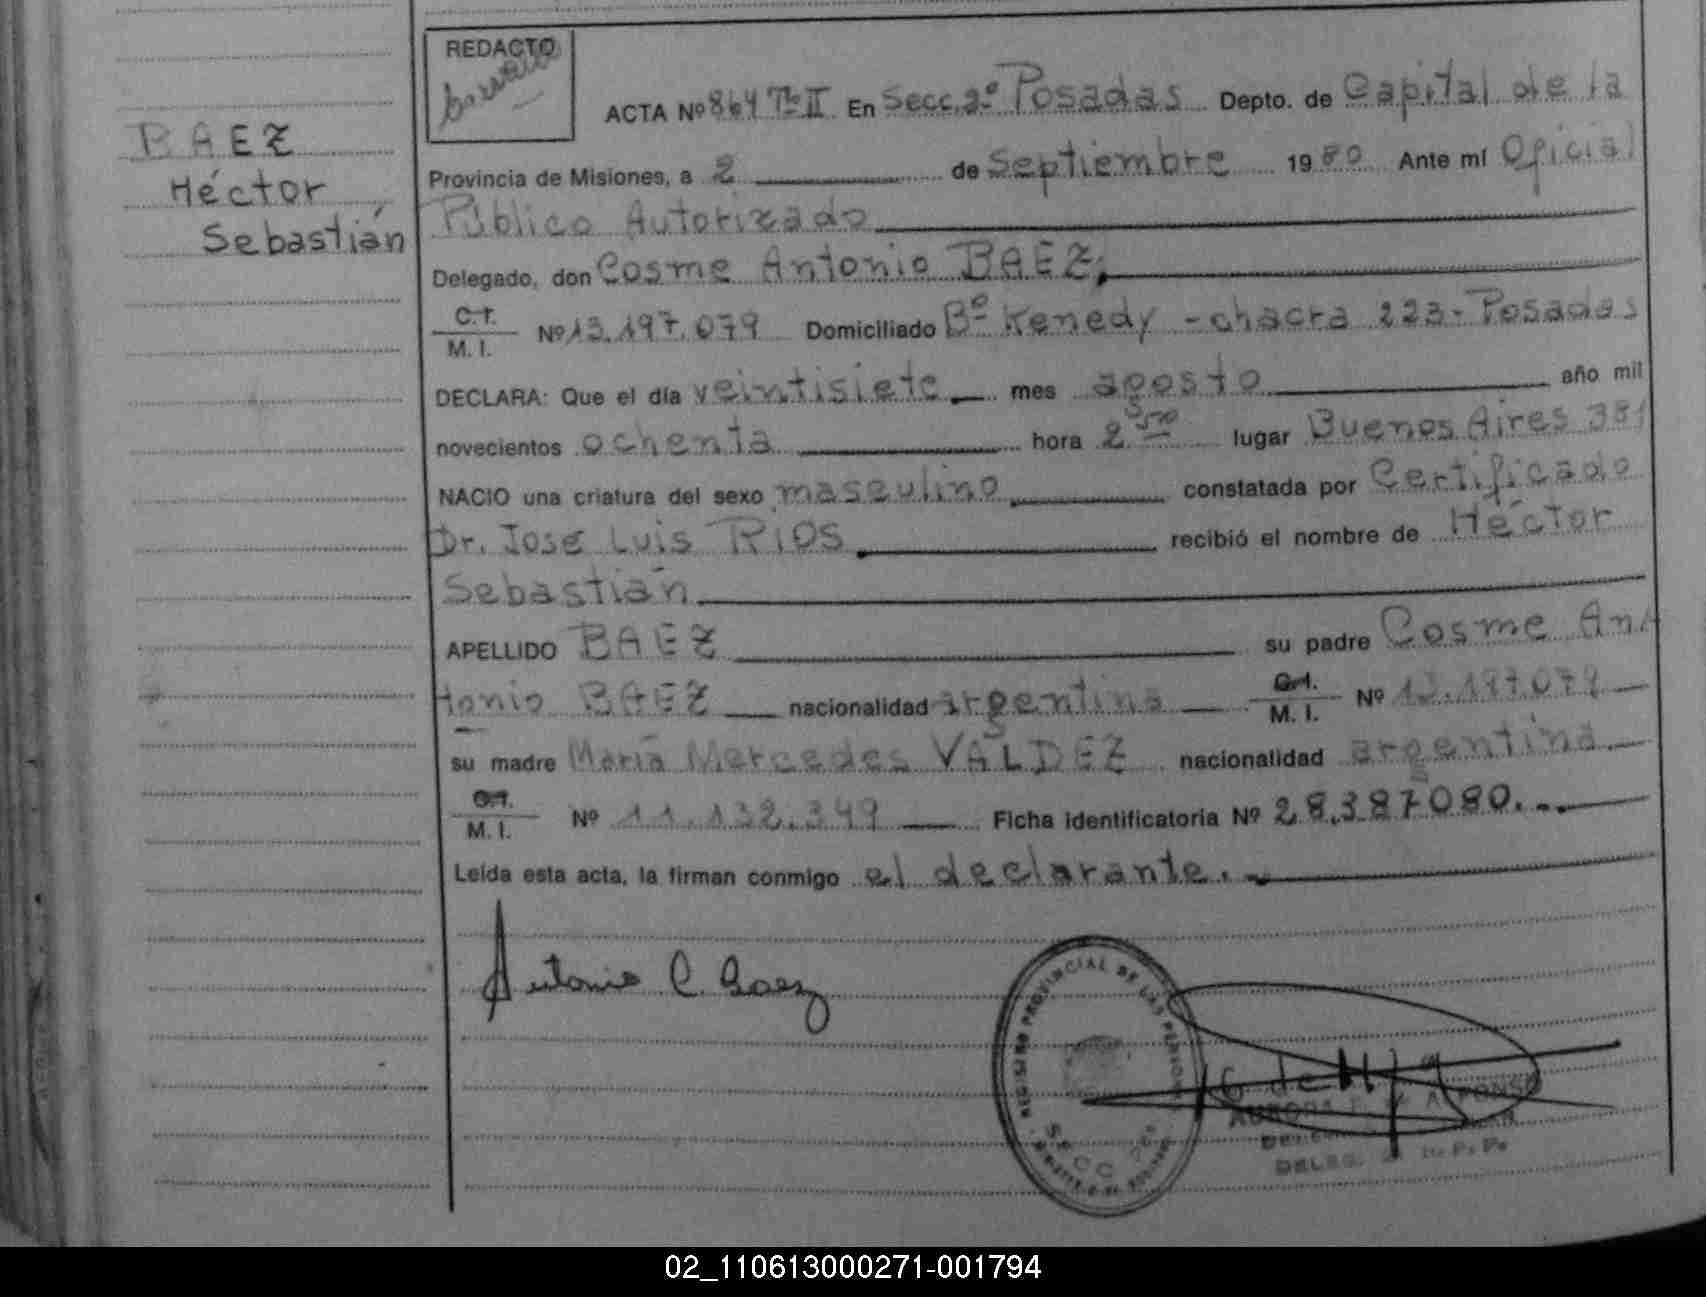 REDACTO
ACTA Nº 864 Tº II En Secc. 2º Posadas Depto. de Capital de la
BAEZ
Héctor
Sebastián
Provincia de Misiones, a 2 de Septiembre 1980 Ante mí Oficial
Público Autorizado
Delegado, don Cosme Antonio BAEZ,
C. I.
M. I. Nº 13.197.079 Domiciliado Bº Kenedy - chacra 223 - Posadas
DECLARA: Que el día veintisiete mes agosto año mil
novecientos ochenta hora 2 lugar Buenos Aires 381
NACIO una criatura del sexo masculino constatada por Certificado
Dr. Jose Luis RIOS recibió el nombre de Héctor
Sebastián
APELLIDO BAEZ su padre Cosme An
tonio BAEZ nacionalidad argentina C. I. M. I. Nº 13.197.079
su madre María Mercedes VALDEZ nacionalidad argentina
C. I.
M. I. Nº 11.132.349 Ficha identificatoria Nº 28.387.080.
Leída esta acta, la firman conmigo el declarante.
Antonio C. Baez
REGISTRO PROVINCIAL DE LAS PERSONAS
SECC
02_110613000271-001794